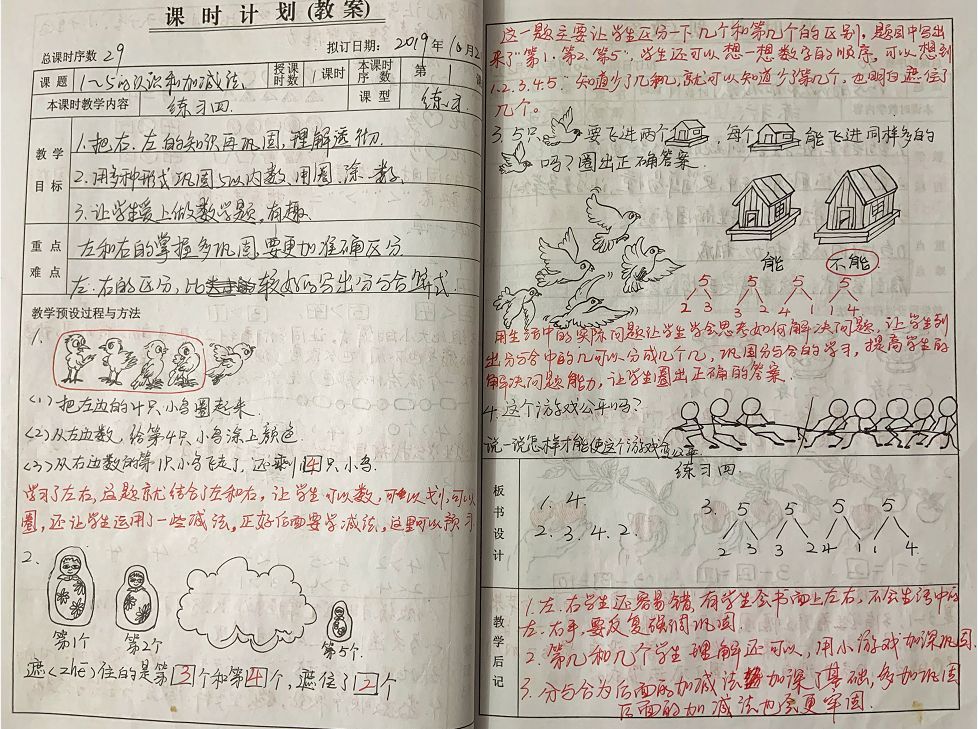 课 时 计 划 (教 案)
总课时序数 29 拟订日期: 2019年10月2
课 题 1~5的认识和加减法 授课时数 1课时 本课时序数 第 1 课
本课时教学内容 练习四 课 型 练习
教学目标
1.把右、左的知识再巩固,理解透彻.
2.用多种形式巩固5以内数,用圈、涂、数.
3.让学生爱上做数学题,有趣.
重点 左和右的掌握多巩固,要更加准确区分
难点 左、右的区分,比较好的写出分与合算式.
教学预设过程与方法
1.
(1)把左边的4只小鸟圈起来.
(2)从左边数,给第4只小鸟涂上颜色.
(3)从右边数的第1只小鸟飞走了,还剩4只小鸟.
学习了左右,这题就结合了左和右,让学生可以数,可以划,可以
圈,还让学生运用了一些减法,正好后面要学减法,这里可以预习
2.
第1个 第2个 第5个.
遮<zhē>住的是第3个和第4个,遮住了2个
这一题主要让学生区分一下几个和第几个的区别,题目中写出
来了"第1、第2、第5",学生还可以想一想数字的顺序,可以想到
1.2.3.4.5.知道少了几和几,就可以知道少了第几个,也明白遮住了
几个。
3. 5只 要飞进两个 ,每个 能飞进同样多的
吗?圈出正确答案.
能 不能
5 5 5 5
2 3 3 2 4 1 1 4
用生活中的实际问题让学生学会思考如何解决问题,让学生列
出分与合中的几可以分成几个几,巩固分与合的学习,提高学生的
解决问题能力,让学生圈出正确的答案.
4.这个游戏公平吗?
说一说怎样才能使这个游戏公平.
板书设计
练习四
1. 4.
2. 3. 4. 2.
3. 5 5 5 5
2 3 3 2 4 1 1 4
教学后记
1.左、右学生还容易错,有学生会书面上左右,不会生活中的
左、右手,要反复强调巩固.
2.第几和几个学生理解还可以,用小游戏加深巩固.
3.分与合为后面的加减法加深了基础,多加巩固
后面的加减法也会更牢固.